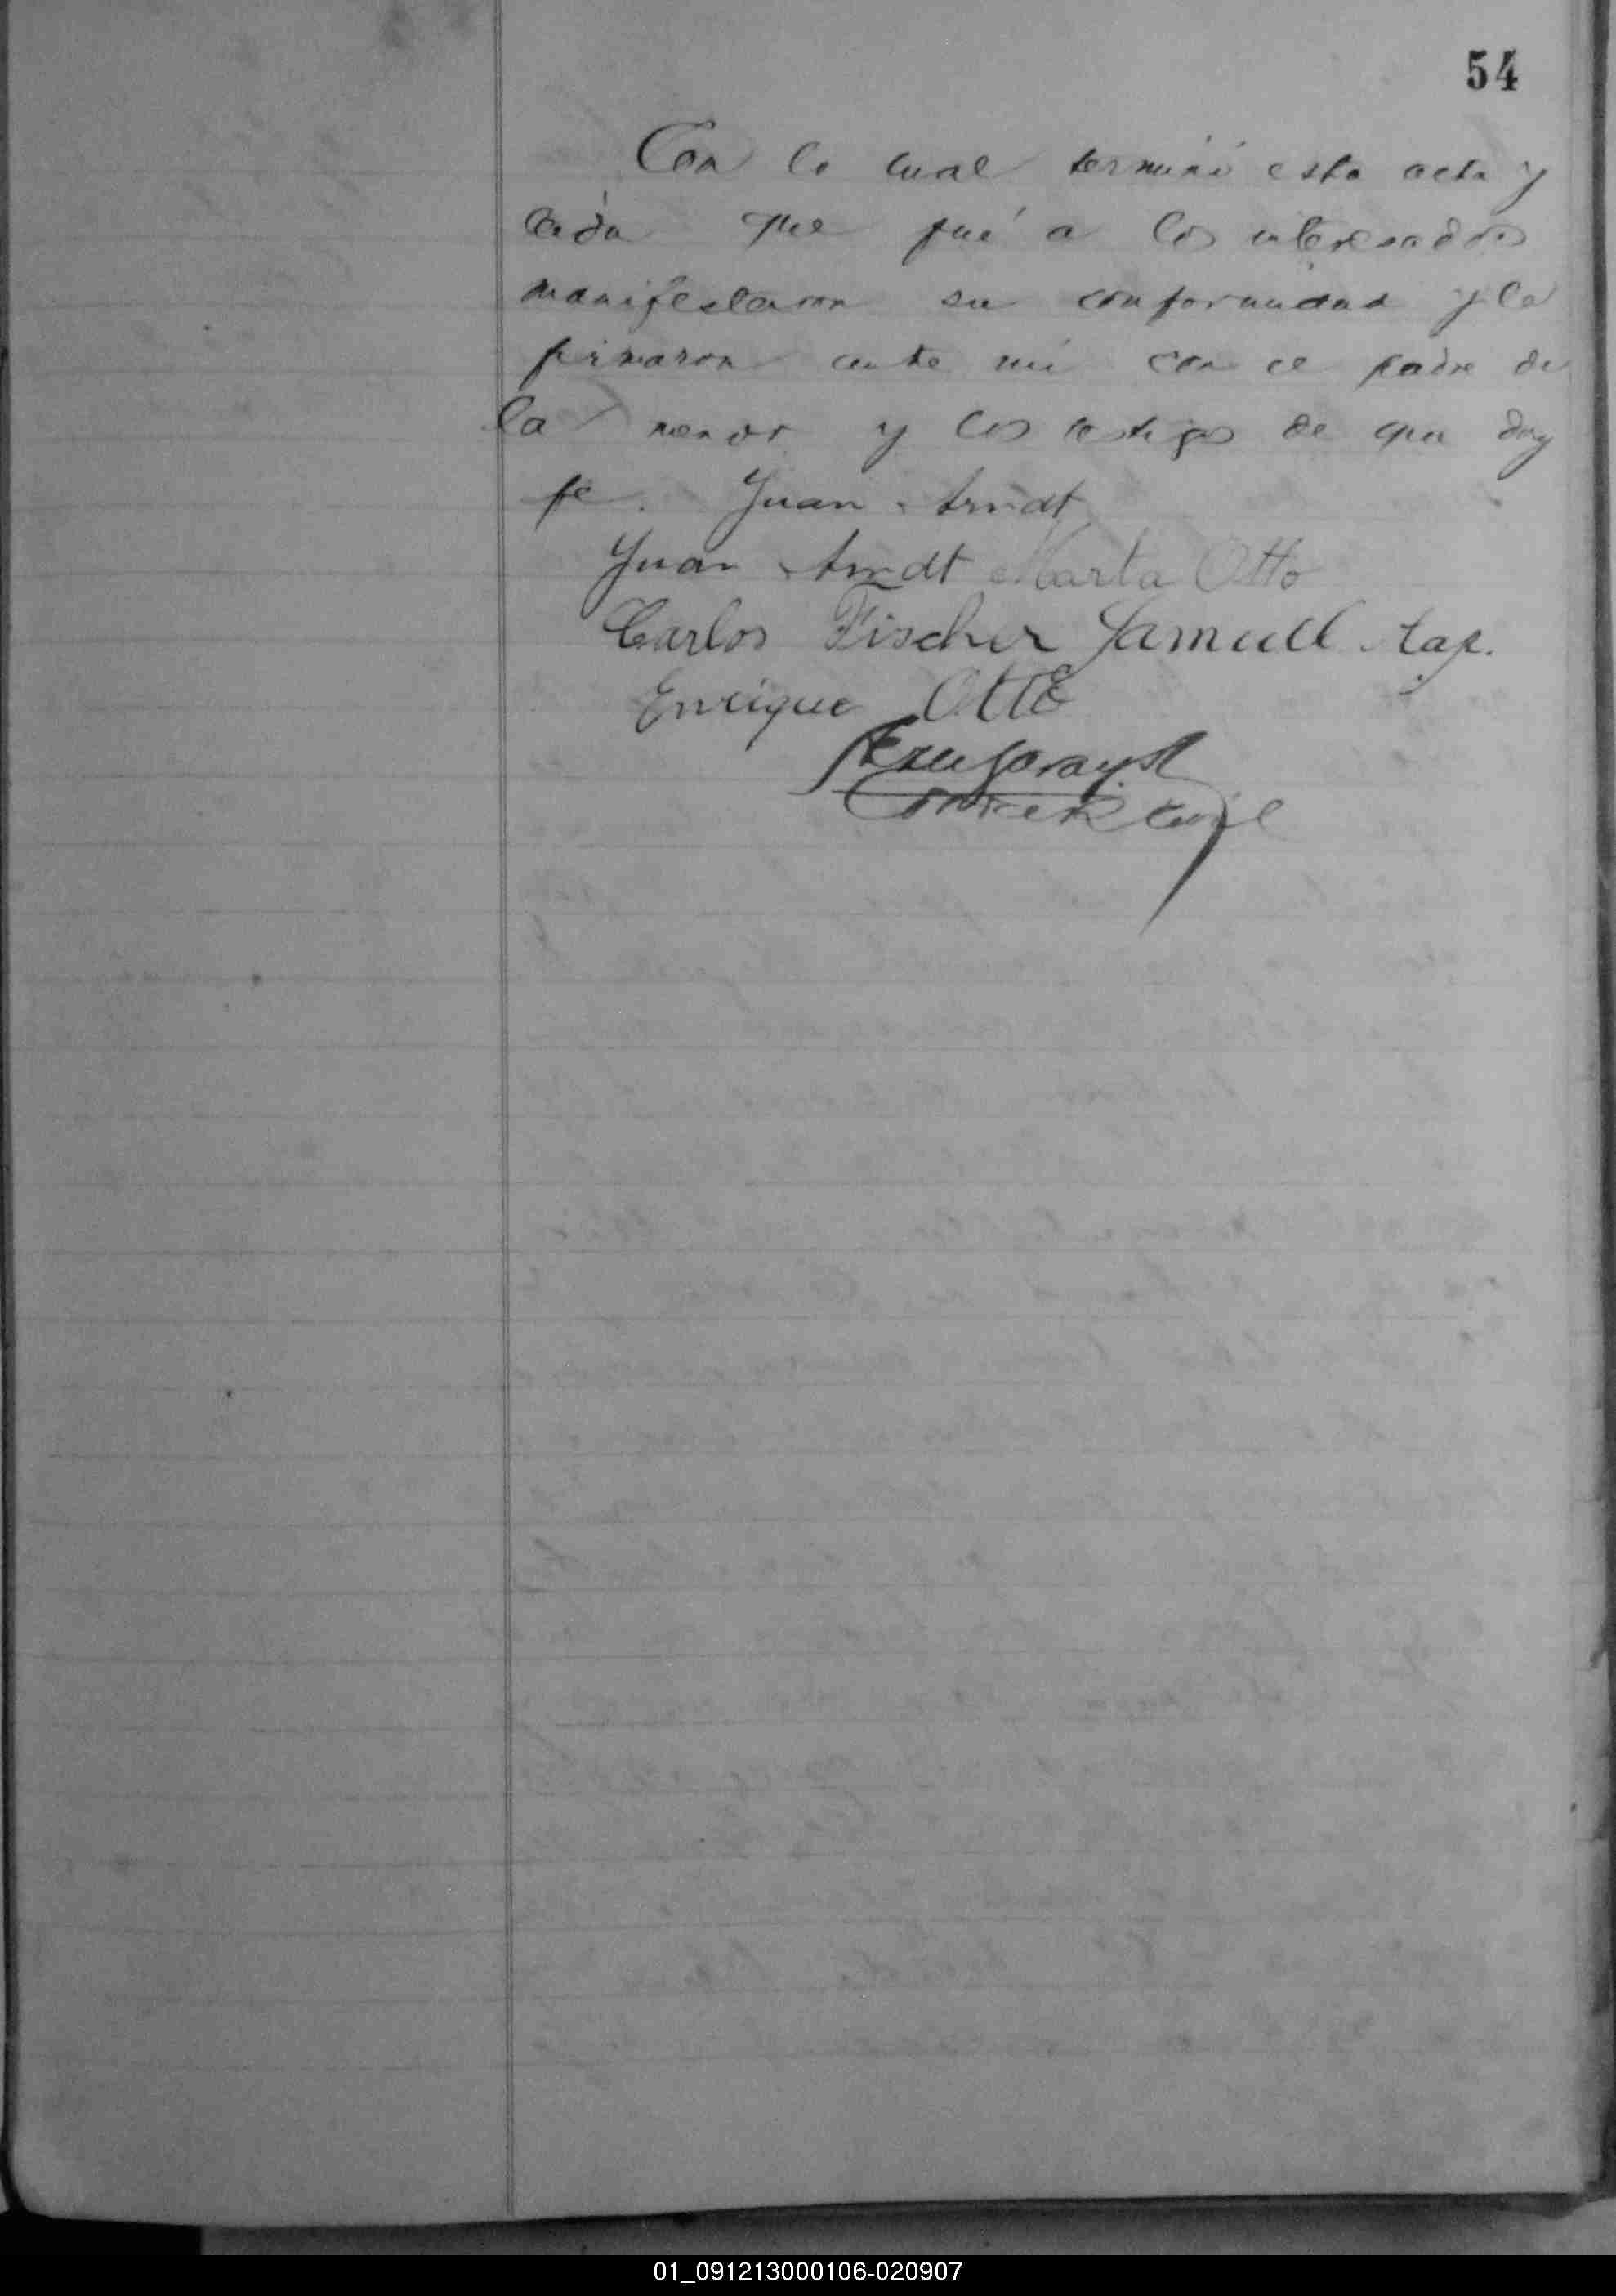 54
Con lo cual terminó esta acta y
leída que fué a los interesados
manifestaron su conformidad y la
firmaron ante mi con el padre de
la menor y los testigos de que doy
fe. Juan Arndt
Juan Arndt Marta Otto
Carlos Fischer Samuel
Enrique Otto
01_091213000106-020907